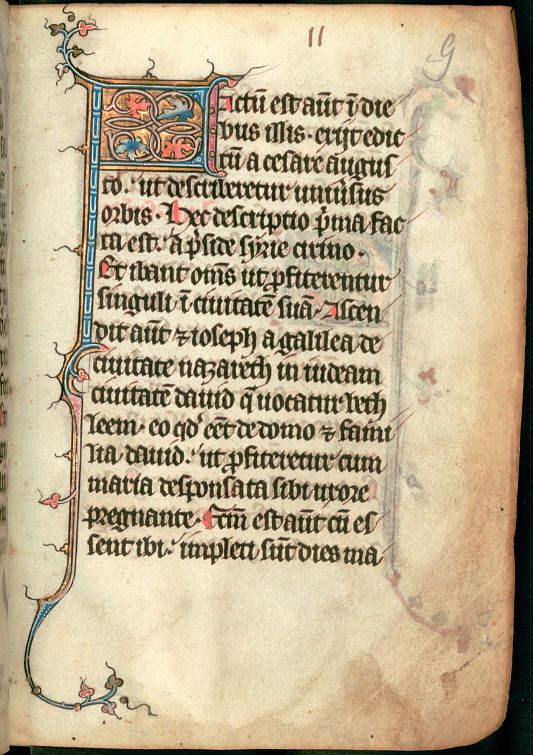 11
9
FActū est aūt ī die
bus illis. exijt edic
tū a cesare augus
to. ut describeretur uniūsus
orbis. Hec descriptio p̄ma fac
ta est. a p̄side syrie cirino.
Et ibant om̄s ut ꝓfiterentur
singuli ī ciuitatē suā. Ascen
dit aūt ⁊ ioseph a galilea de
ciuitate nazareth in iudeam
ciuitatē dauid q̄ uocatur beth
leem. eo qd' eēt de domo ⁊ fami
lia dauid. ut ꝓfiteretur cum
maria desponsata sibi uxore
pregnante. Fc̄m est aūt cū es
sent ibi. impleti sūt dies ma